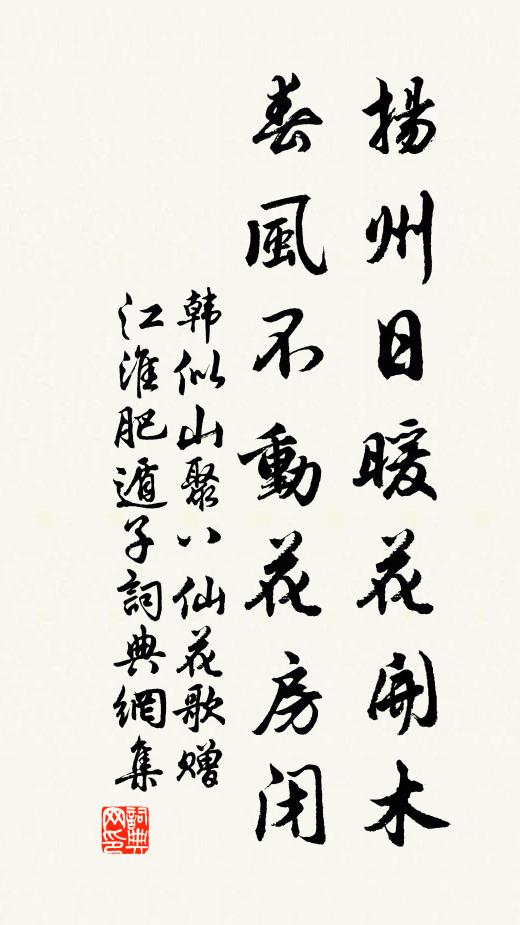 揚州日暖花開木
春風不動花房闭
韩似山聚八仙花歌赠
江淮肥遁子詞典網集
詞典网印